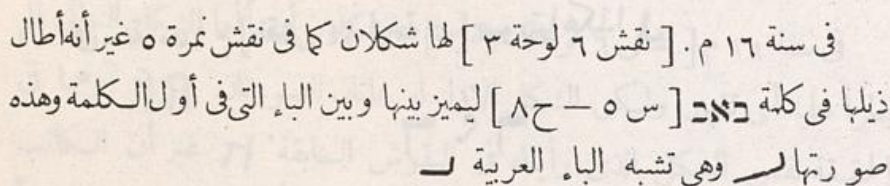 فى سنة ١٦ م . [ نقش ٦ لوحة ٣ ] لها شكلان كما فى نقش نمرة ٥ غير أنه أطال
ذيلها فى كلمة באב [ س ٥ — ح ٨ ] ليميز بينها وبين الباء التى فى أول الكلمة وهذه
صورتها ـر وهى تشبه الباء العربية ـر